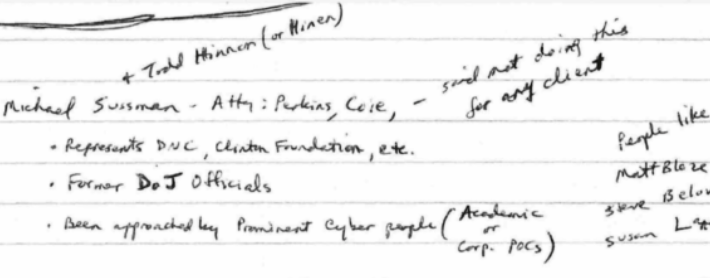 + Todd Hinnan (or Hinen)
Michael Sussman - Atty: Perkins, Coie, - said not doing this
for any client
• Represents DNC, Clinton Foundation, etc.
• Former DoJ Officials
• Been approached by Prominent Cyber people (Academic
or
Corp. POCs)
People like
Matt Blaze
Steve Belov
Susan